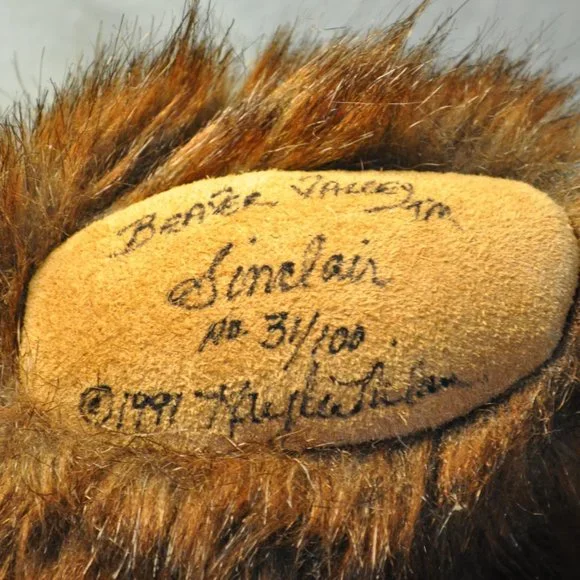 BEAVER VALLEY TM
Sinclair
no. 31/100
©1991